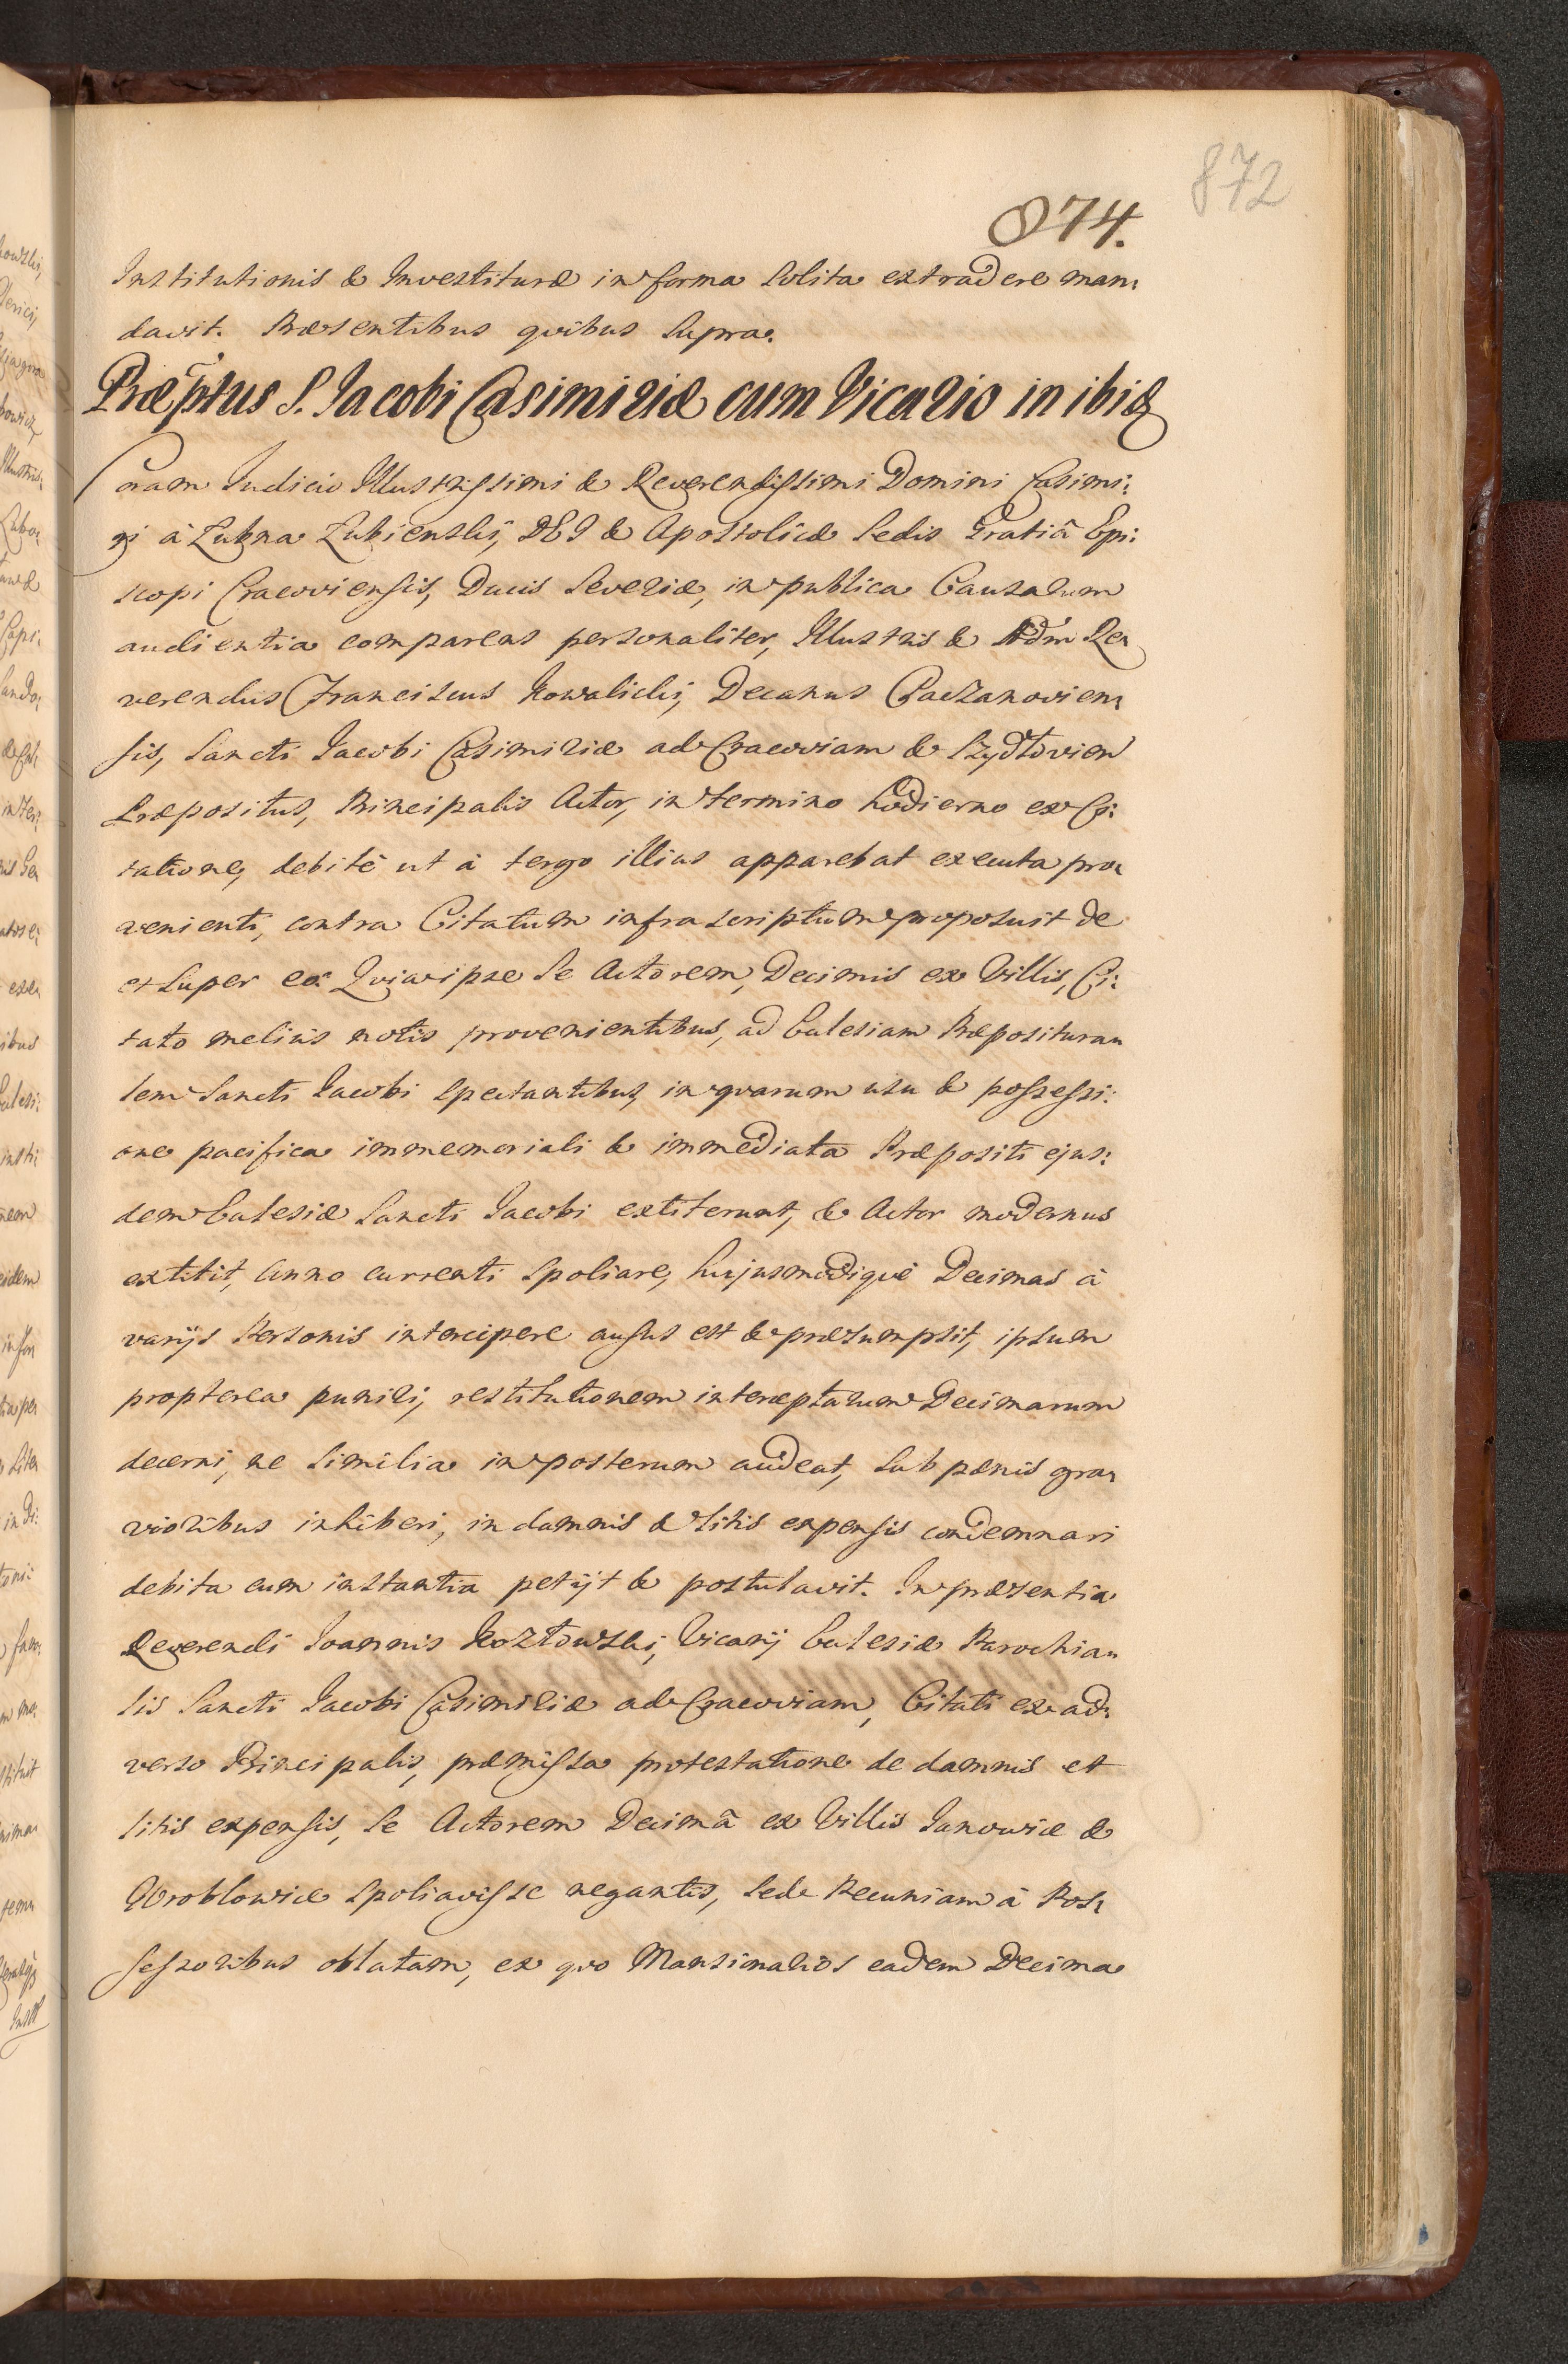 872
874.
Institutionis & Investituræ in forma solita extradere man,
davit. Præsentibus quibus supra.
Præptus S. Jacobi Casimiriæ cum Vicario in ibid
Coram Judicio Illustrissimi & Reverendissimi Domini Casimi:
ri à Łubna Łubienski, DEI & Apostolicæ Sedis Gratiâ Epi:
scopi Cracoviensis, Ducis Severiæ, in publica Causarum
audientia comparens personaliter, Illustris & Adm Re,
verendus Franciscus Kowalicki, Decanus Paczanovien,
sis, Sancti Jacobi Casimiriæ ad Cracoviam & Szydłovien
Præpositus, Principalis Actor, in termino hodierno ex Ci:
tatione, debitè ut à tergo illius apparebat executa pro,
venienti, contra Citatum infrascriptum proposuit de
et super eo: Quia ipse se Actorem, Decimis ex Villis, Ci:
tato melius notis provenientibus, ad Ecclesiam Præposituran
lem Sancti Jacobi spectantibus, in quarum usu & possessi:
one pacifica immemoriali & immediata Præpositi ejus:
dem Ecclesiæ Sancti Jacobi extiterunt, & Actor modernus
extitit, Anno currenti spoliare, hujusmodiquè Decimas à
varijs Personis intercipere ausus est & præsumpsit, ipsum
propterea puniri, restitutionem interceptarum Decimarum
decerni, ne similia in posterum audeat, sub pænis gra,
vioribus inhiberi, in damnis & litis expensis condemnari
debita cum instantia petijt & postulavit. In præsentia
Reverendi Joannis Kozłowski, Vicarij Ecclesiæ Parochian
lis Sancti Jacobi Casimiriæ ad Cracoviam, Citati ex ad,
verso Principalis, præmissa protestatione de damnis et
litis expensis, se Actorem Decimâ ex Villis Janowice &
Wroblowice spoliavisse negantis, sed Pecuniam à Pos,
sessoribus oblatam, ex quo Mansionarios eadem Decima